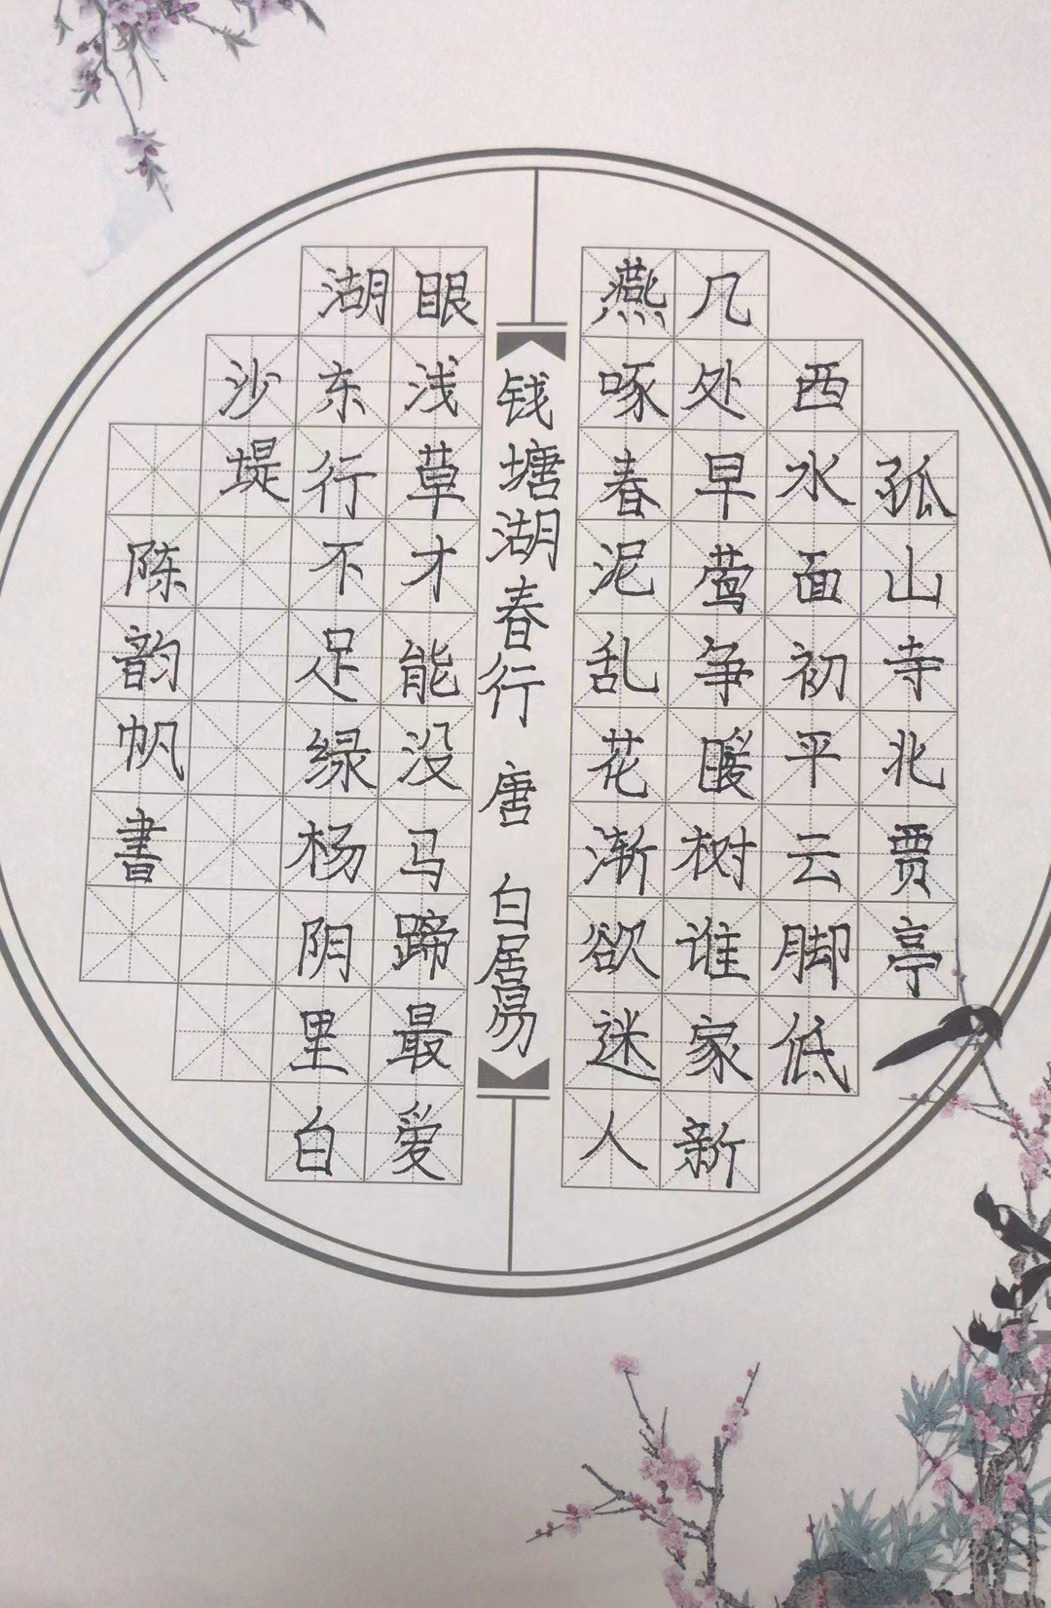 孤山寺北贾亭
西水面初平云脚低
几处早莺争暖树谁家新
燕啄春泥乱花渐欲迷人
钱塘湖春行 唐 白居易
眼浅草才能没马蹄最爱
湖东行不足绿杨阴里白
沙堤
陈韵帆書